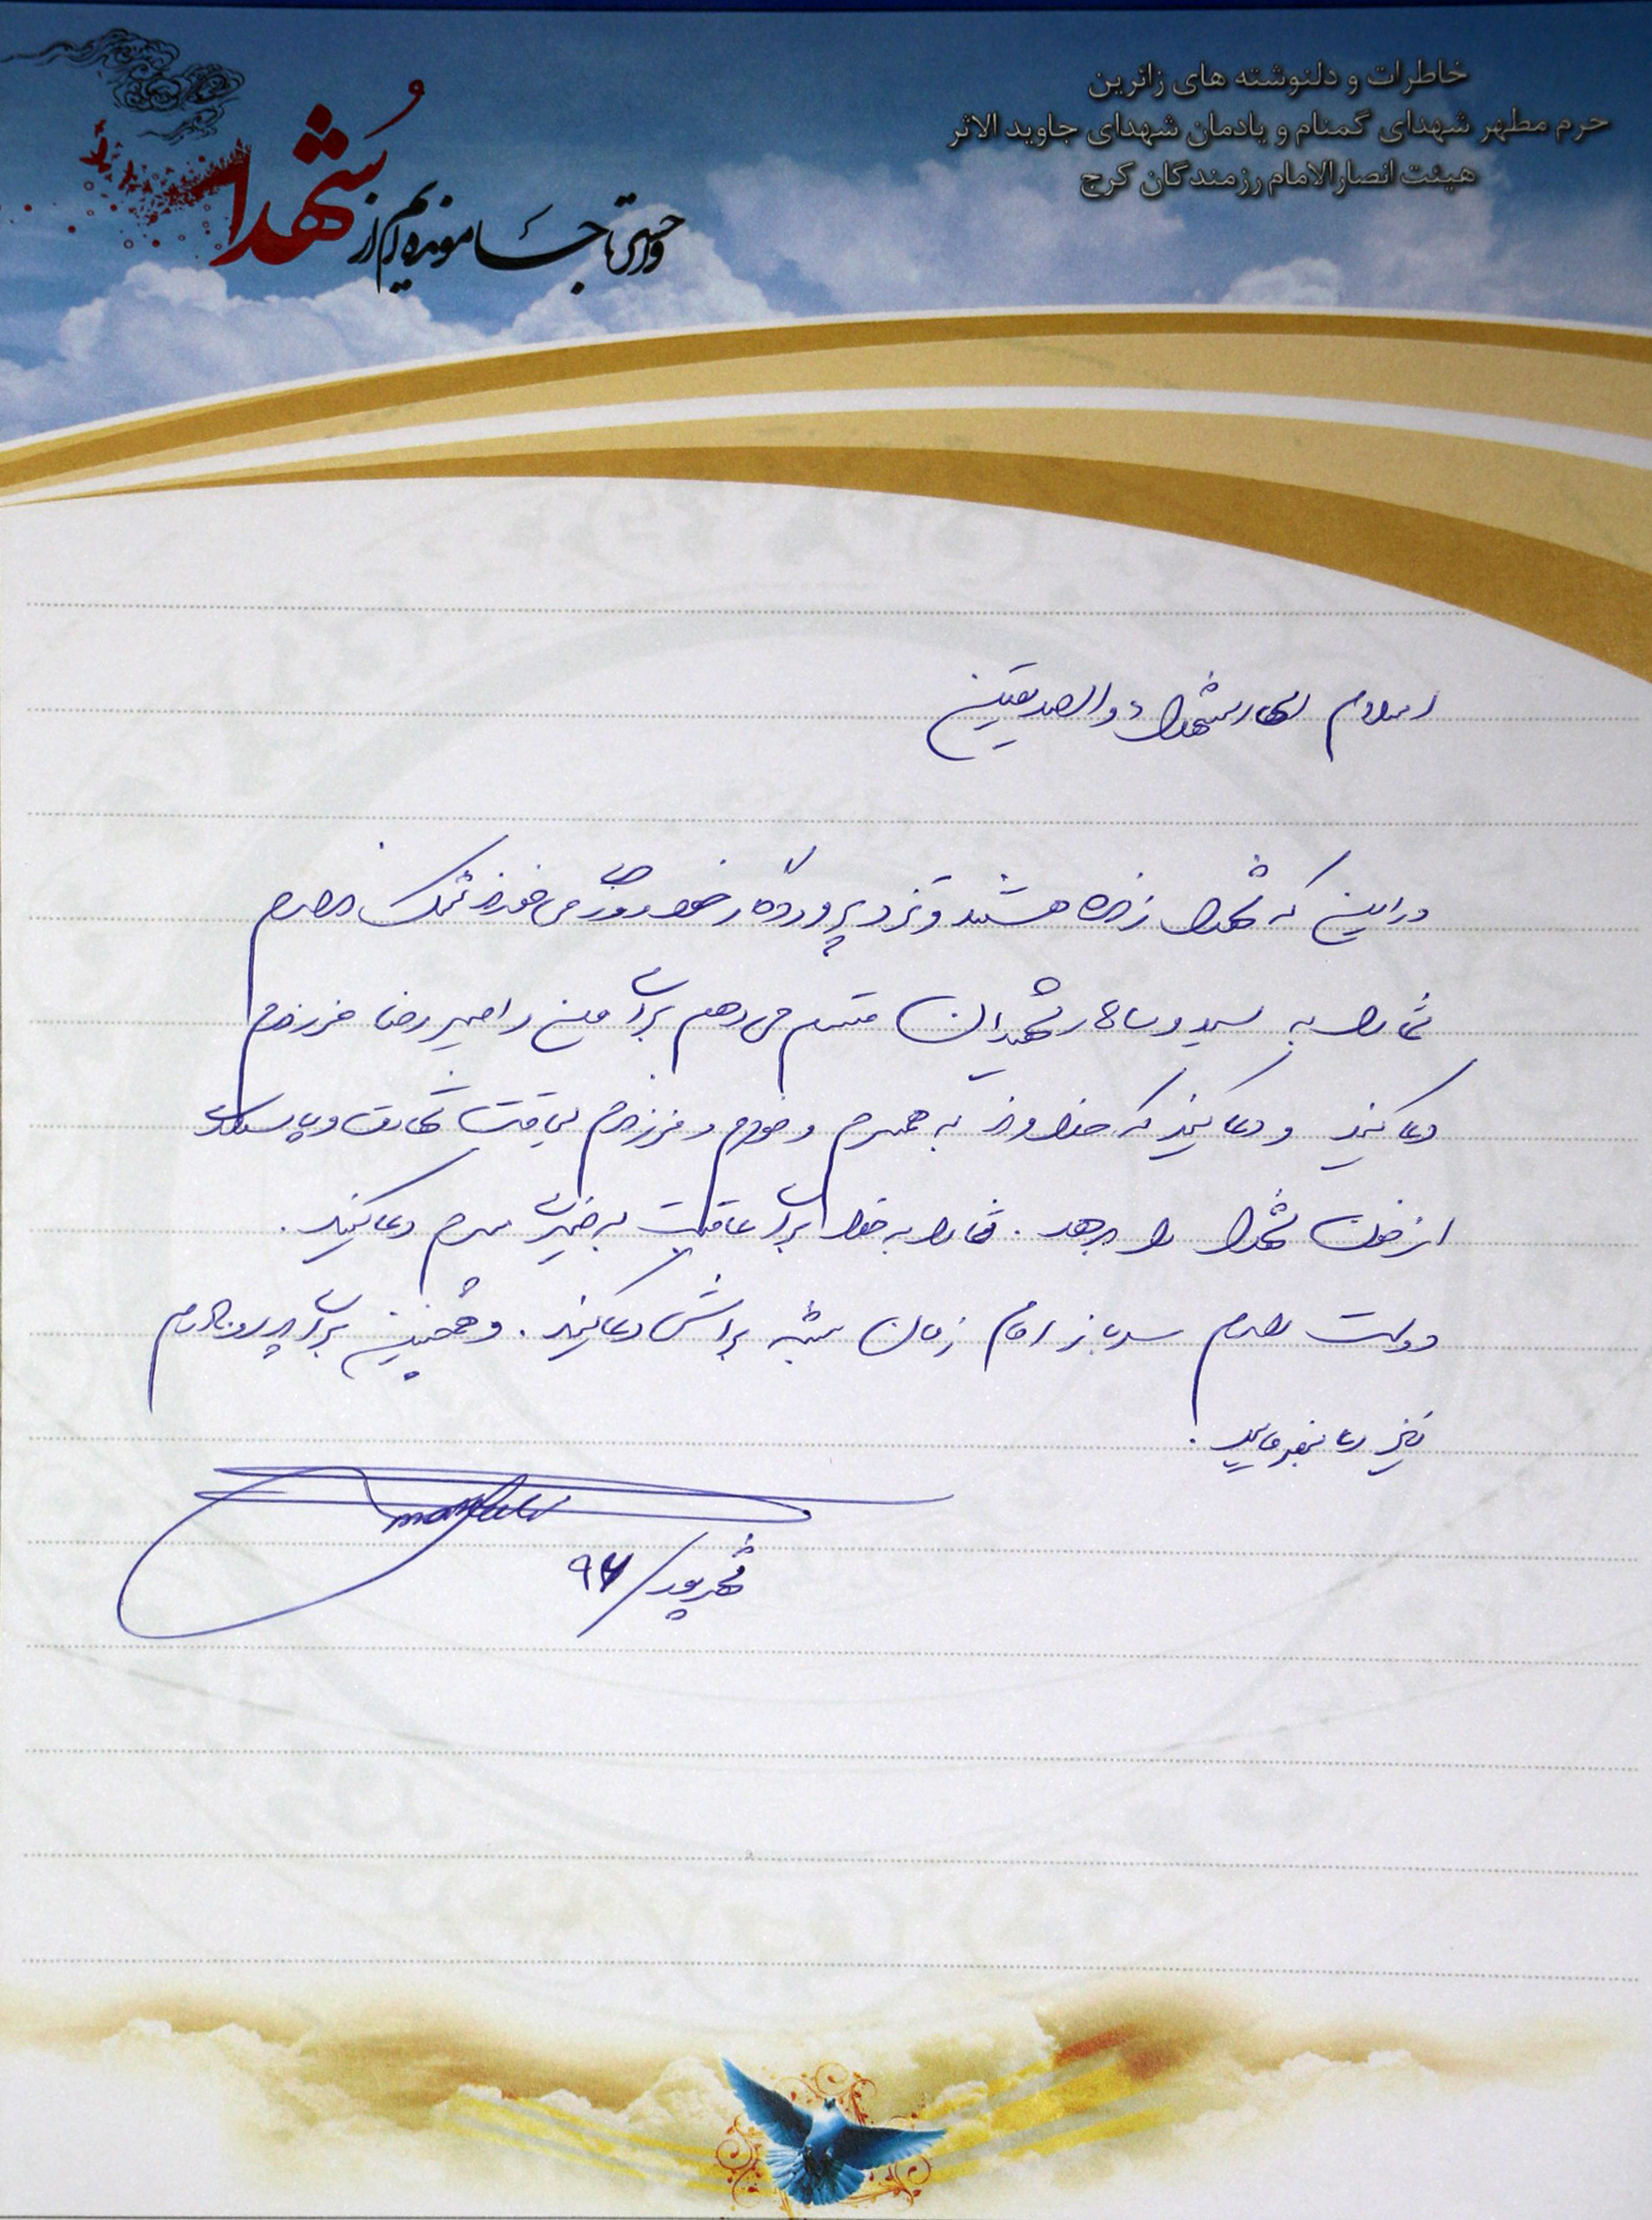 خاطرات و دلنوشته های زائرین
حرم مطهر شهدای گمنام و یادمان شهدای جاوید الاثر
هیئت انصارالامام رزمندگان کرج
و حسرتی تا جا مونده ایم از شهدا
السلام ای شهداء والصدیقین
در این که شهدا زنده هستند و نزد پروردگار خود روزی می خورند شک ندارم
شما را به سید و سالار شهیدان قسم می دهم برای من و امیررضا فرزندم
دعا کنید و دعا کنید که خداوند به همسرم و خودم و فرزندم لیاقت شهادت و پاسداری
از خون شهدا را بدهد . شما را به خدا برای عاقبت به خیری پسرم دعا کنید .
دوست دارم سرباز امام زمان بشه براش دعا کنید . و همچنین برای پدر و مادرم
نیز دعا بفرمایید .
شهریور/ ۹۷